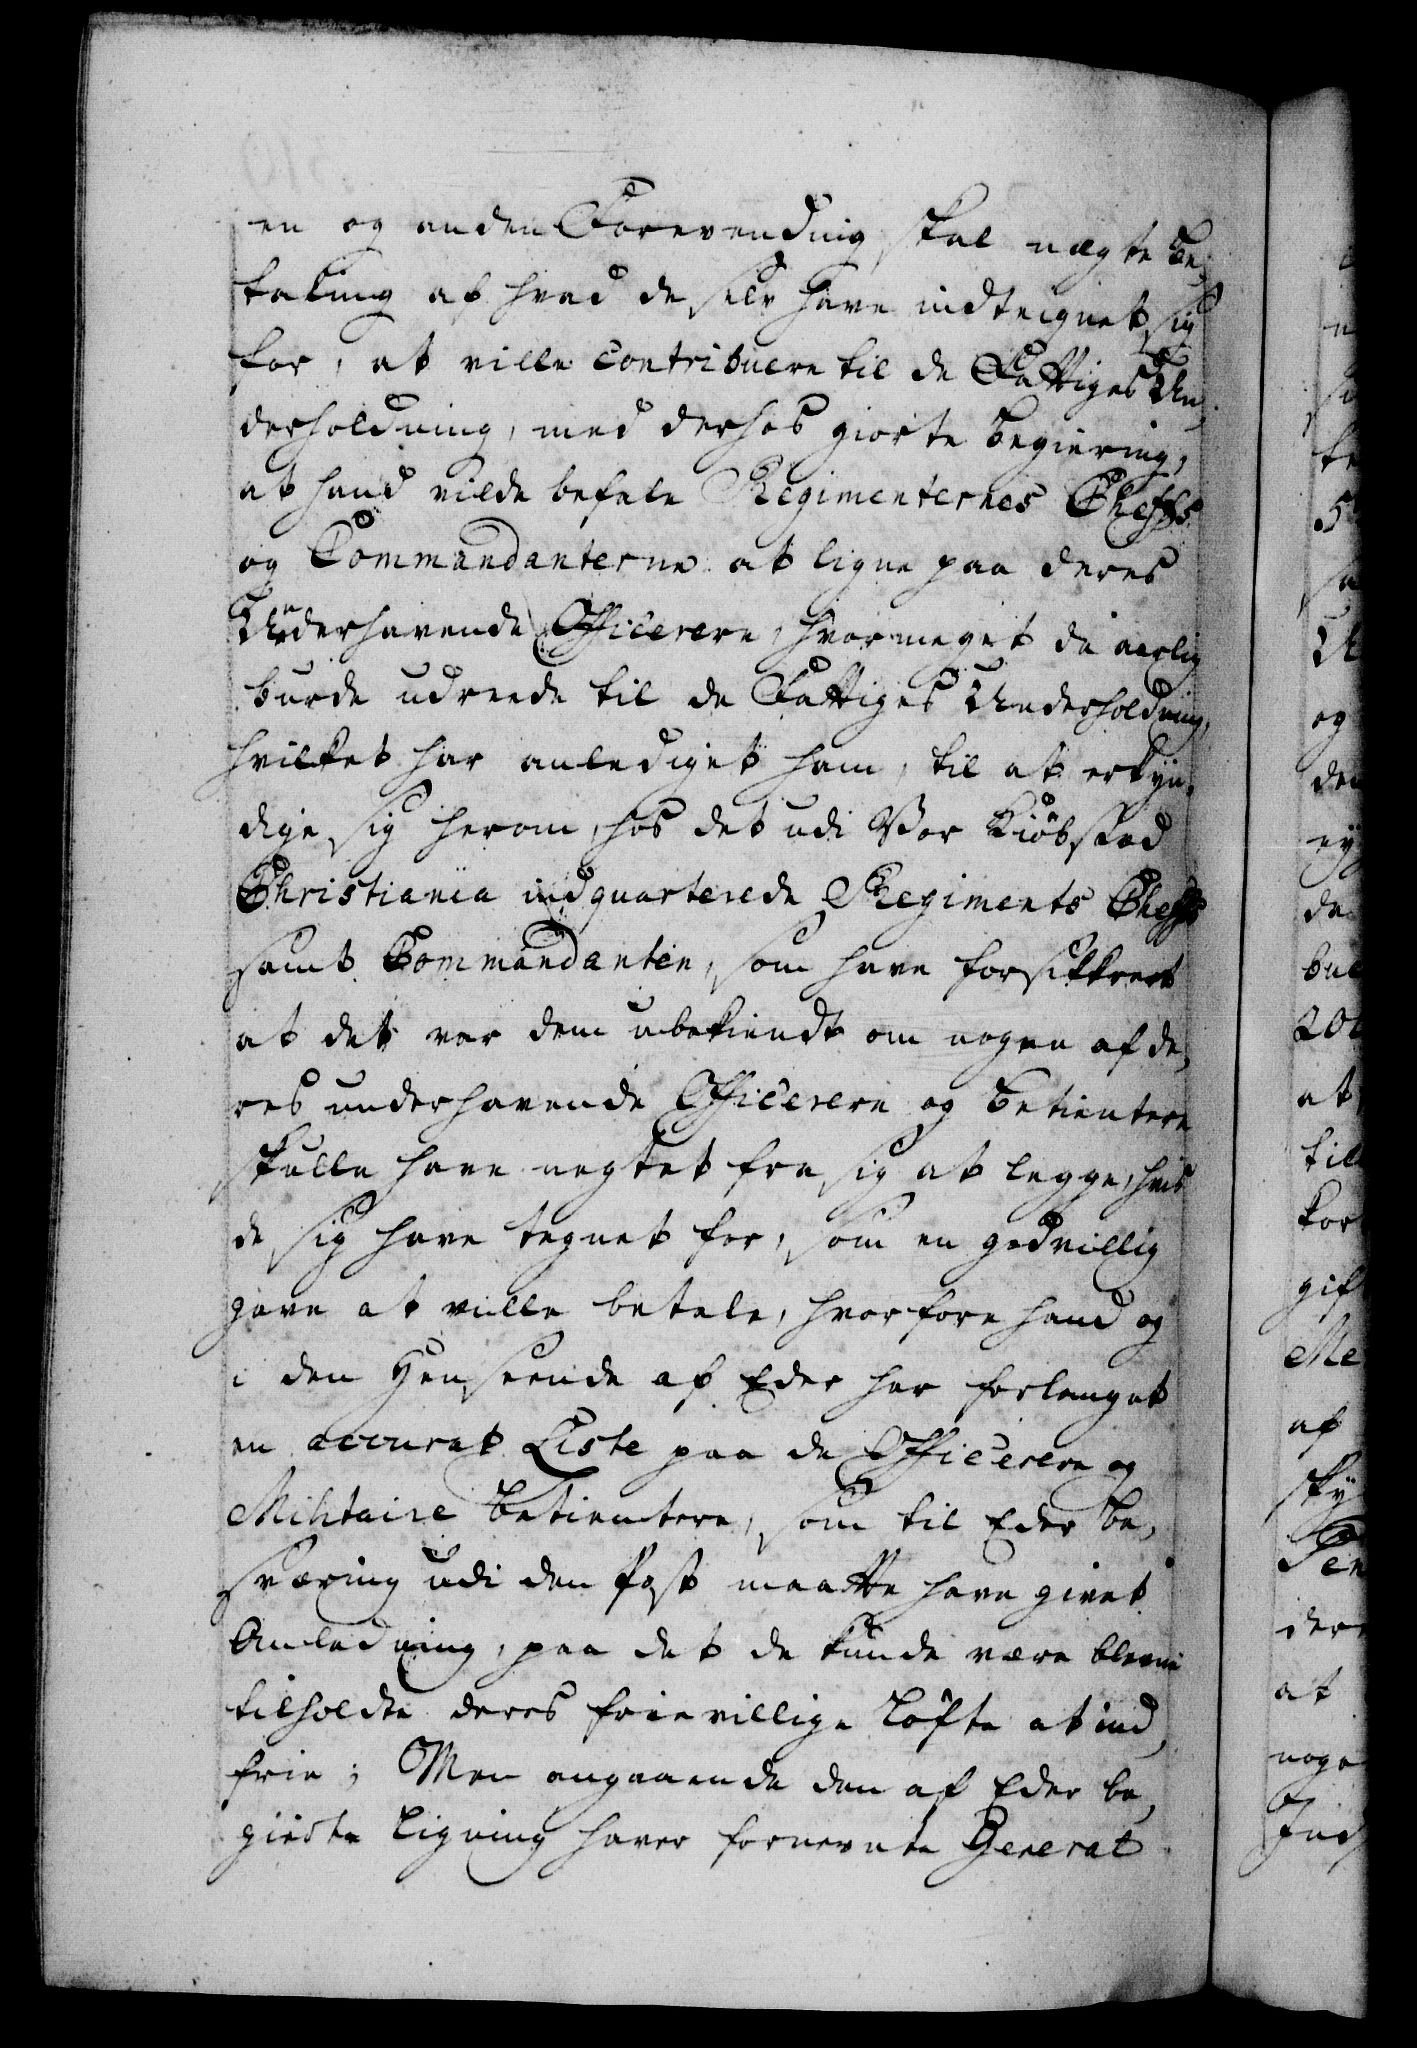 en og anden Forevending skal negte Be-
taling af hvad de selv have indteignet sig
for, at ville contribuere til de Fattiges Un-
derholdning, med derhos giorte begiering,
at hand vilde befale Regimenternes Cheffs
og Commandanterne at ligne paa deres
Underhavende Officerere, hvormeget de aarlig
burde udreede til de Fattiges Underholdning,
hvilket har anlediget ham, til at erkyn-
dige sig herom, hos det udi Vor Kiöbstad
Christiania indquarterede Regiments Cheffs
samt Commandanten, som have forsikkret
at det var dem ubekiendt om nogen af de-
res underhavende Officerere og betientere
skulle have negtet fra sig at legge, hvis
de sig have tegnet for, som en godvillig
gave at ville betale, hvorfore hand og
i den Henseende af Eder har forlanget
en accurat Liste paa de Officerere og
Militaire betientere, som til Eder be-
sværing udi den Post maatte have givet
Anledning, paa det de kunde være blevne
tilholdte deres frievillige Löfte at ind-
frie; Men angaaende den af Eder be-
gierte Ligning haver fornevnte General